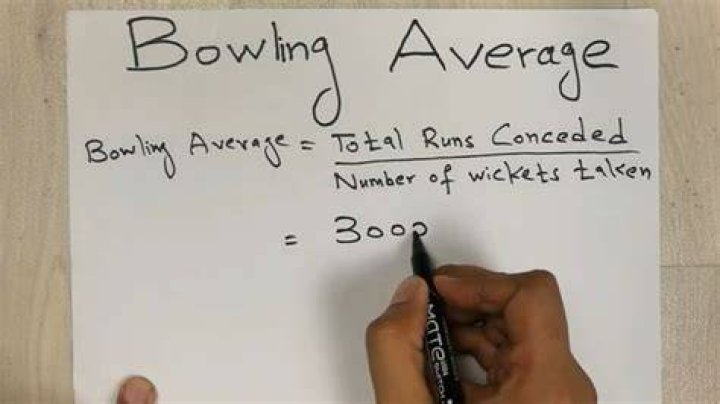 Bowling Average
Bowling Average = Total Runs Conceded
Number of wickets taken
= 3000
MATE